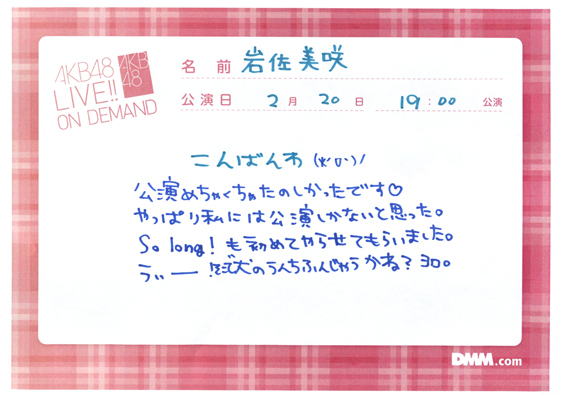 AKB48
LIVE!!
ON DEMAND
AKB
48
名前 岩佐美咲
公演日 2月 20日 19:00 公演
こんばんわ
公演めちゃくちゃたのしかったです♡
やっぱり私には公演しかないと思った。
So long! も初めてやらせてもらいました。
うぃー 犬のうんちふんじゃうかね? ヨロ。
DMM.com